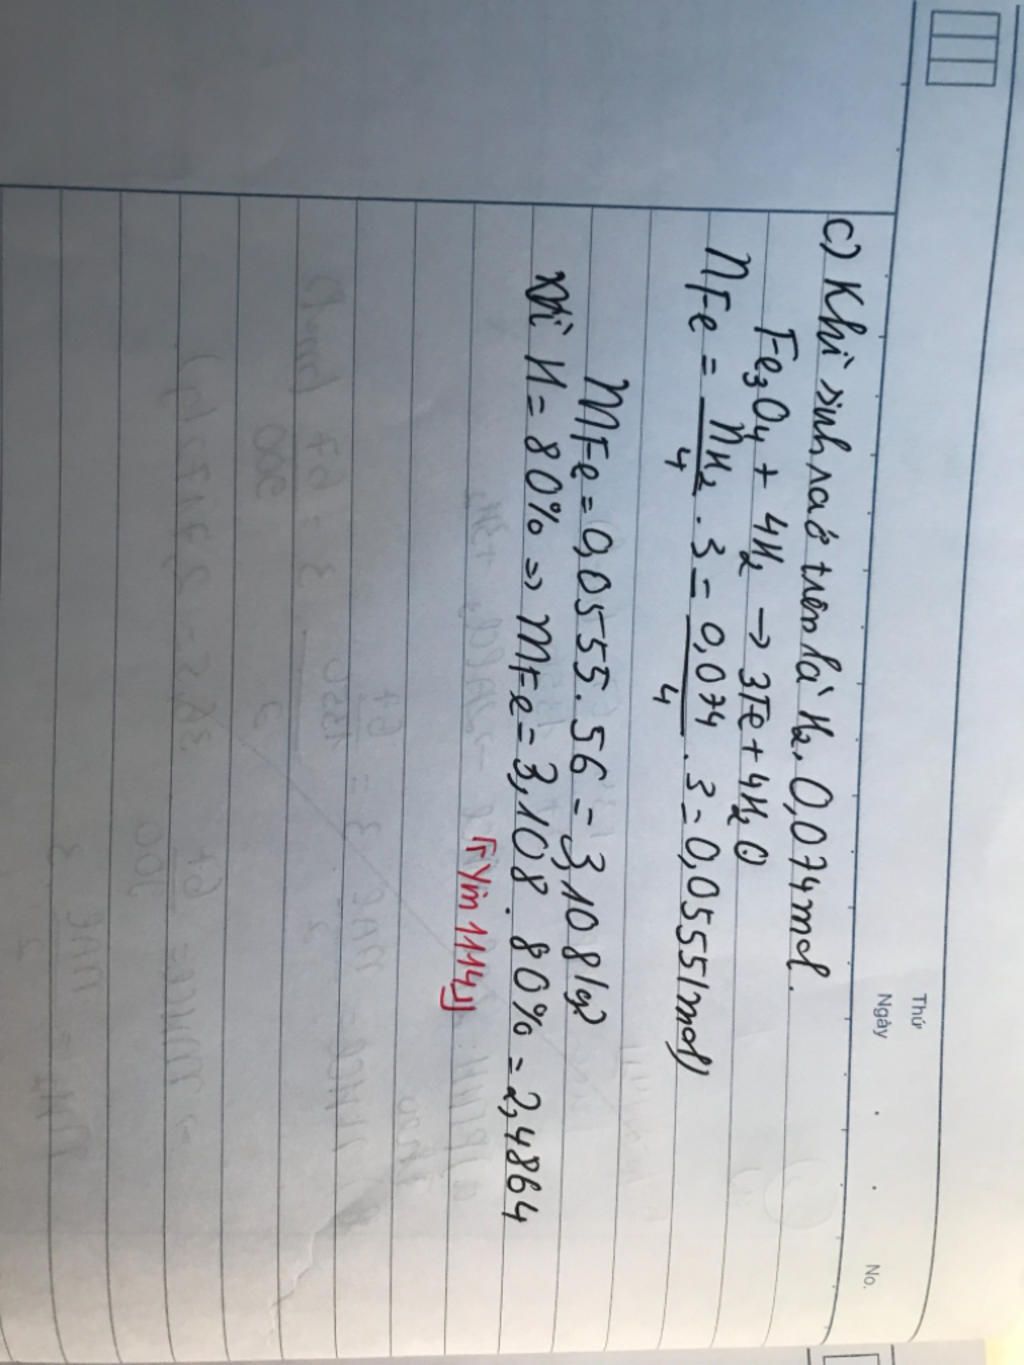 Thứ
Ngày . . No.
c) Khí sinh ra ở trên là H₂, 0,074 mol.
Fe₃O₄ + 4H₂ → 3Fe + 4H₂O
nFe = nH₂/4 . 3 = 0,074/4 . 3 = 0,0555 (mol)
mFe = 0,0555 . 56 = 3,108 (g)
Vì H = 80% => mFe = 3,108 . 80% = 2,4864
Yin 1114